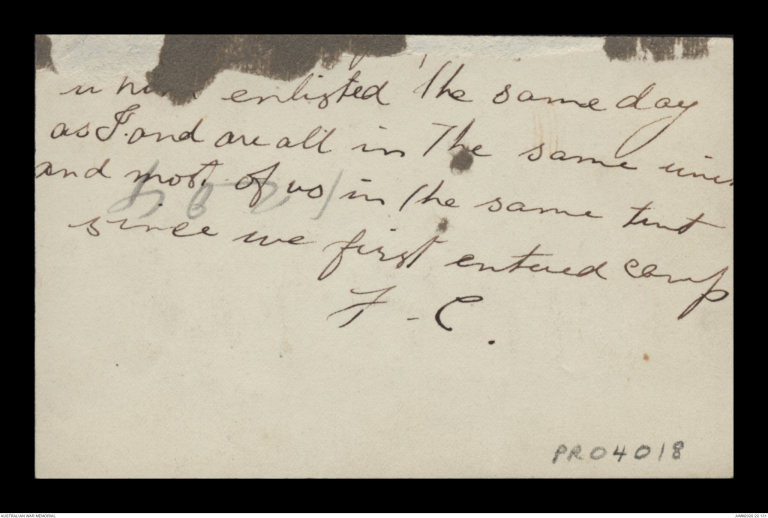 enlisted the same day
as I. and are all in The same unit
and most of us in the same tent
since we first entered camp
F - C.
PR04018
AUSTRALIAN WAR MEMORIAL